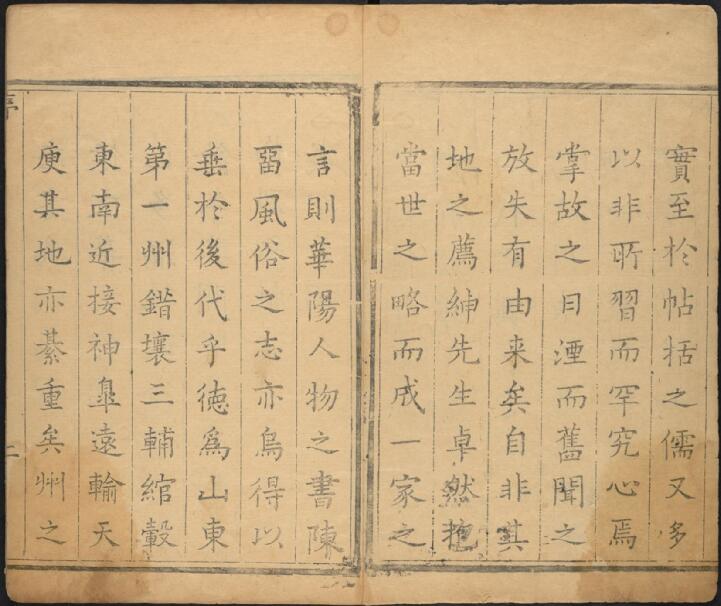 實至於帖括之儒又多
以非所習而罕究心焉
掌故之日湮而舊聞之
放失有由来矣自非其
地之薦紳先生卓然抱
當世之略而成一家之
言則華陽人物之書陳
畱風俗之志亦烏得以
垂於後代乎徳爲山東
第一州錯壤三輔綰轂
東南近接神臯遠輸天
庾其地亦綦重矣州之
序